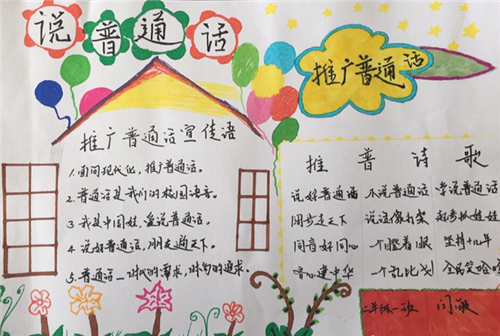 说普通话
推广普通话宣传语
1.面向现代化,推广普通话。
2.普通话是我们的校园语言。
3.我是中国娃,爱说普通话。
4.说好普通话,朋友遍天下。
5.普通话—时代的需求,时尚的追求。
推广普通话
推普诗歌
说好普通话 不说普通话 常说普通话
同步走天下 说话像打架
同音好同心 一个瞪着眼 坚持十四年
一个乱比划 全民笑哈哈
二年级一班 闫敏